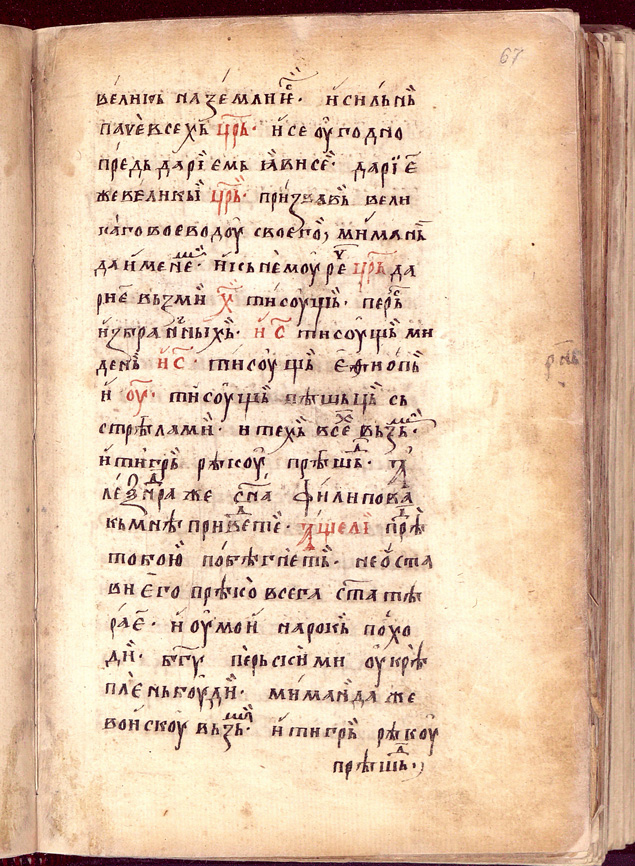 67
велико на земли є҆. и҆ силнѣ
паче въсехь црь. и҆ се оугодно
прѣдь дарїемь ꙗ҆ви се. дарїе
же велики црь. призвавь вели
каго воеводоу своего, мимань
да именемь. и҆ къ немоу рече црь да
рїе възми х҃ тисоущь. перьсь
избранныхь. и҆ с҃ тисоущь ми
день и҆ с҃. тисоущь еѳиопь
и҆ оу҃. тисоущь пѣшьць сь
стрѣлами. и҆ техь все възьмши.
и҆ тигрь рѣкоу прѣшьдь. алѐ
леѯандра же сн҃а филипова
къ мнѣ приведете. аще ли прѣдь
тобою побѣгнеть. не оста
ви е҆го прѣко всега стада тѣ
рае. и҆ оу мои нарокь походи
ди. бг҃у перьскими оукрѣ
плень боуди. миманда же
воискоу възьмши. и҆ тигрь рѣкоу
прѣшьдь.,